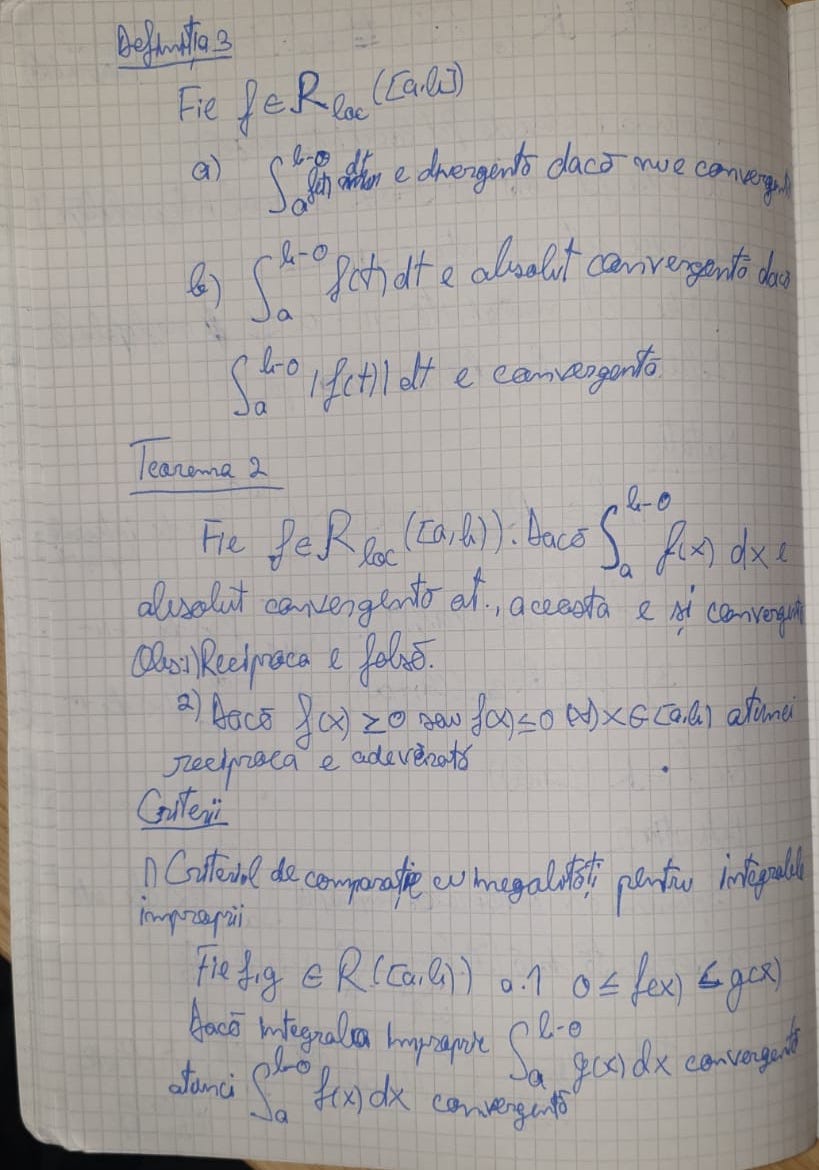 Definiția 3
Fie f ∈ R_loc ([a,b])
a) ∫_a^{b-0} f(t) dt e divergentă dacă nu e convergentă
b) ∫_a^{b-0} f(t) dt e absolut convergentă dacă
∫_a^{b-0} |f(t)| dt e convergentă
Teorema 2
Fie f ∈ R_loc ([a,b)). Dacă ∫_a^{b-0} f(x) dx e
absolut convergentă at., aceasta e și convergentă
Obs: 1) Reciproca e falsă.
2) Dacă f(x) ≥ 0 sau f(x) ≤ 0 (∀) x ∈ [a,b) atunci
reciproca e adevărată
Criterii
1) Criteriul de comparație cu inegalități pentru integralele
improprii
Fie f,g ∈ R([a,b)) a.î 0 ≤ f(x) ≤ g(x)
Dacă integrala improprie ∫_a^{b-0} g(x) dx convergentă
atunci ∫_a^{b-0} f(x) dx convergentă